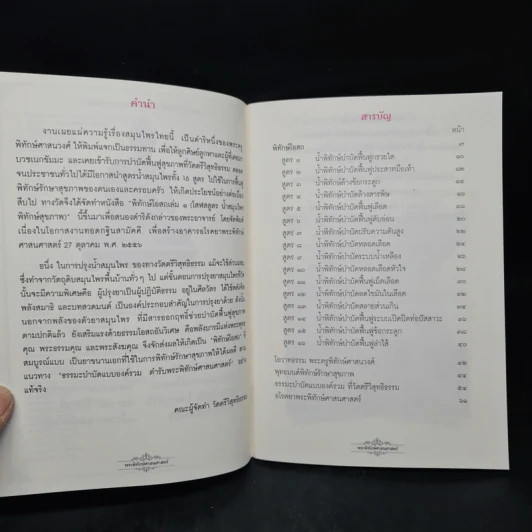 คำนำ
งานเผยแผ่ความรู้เรื่องสมุนไพรไทยนี้ เป็นดำริหนึ่งของพระครู
พิทักษ์ศาสนวงศ์ ให้พิมพ์แจกเป็นธรรมทาน เพื่อให้ลูกศิษย์ลูกหาและผู้ที่
บวชเนกขัมมะ และเคยเข้ารับการบำบัดฟื้นฟูสุขภาพที่วัดตรีวิสุทธิธรรม ตลอด
จนประชาชนทั่วไปได้มีโอกาสนำสูตรน้ำสมุนไพรทั้ง ๑๖ สูตร ไปใช้ในการฟื้นฟู
พิทักษ์รักษาสุขภาพของตนเองและครอบครัว ให้เกิดประโยชน์อย่างต่อเนื่อง
สืบไป ทางวัดจึงได้จัดทำหนังสือ "พิทักษ์โอสถเล่ม ๑
พิทักษ์สุขภาพ)" นี้ขึ้นมาเพื่อสนองดำริดังกล่าวของพระอาจารย์ โดยจัดพิมพ์
เนื่องในโอกาสงานทอดกฐินสามัคคี เพื่อสร้างอาคารอโรคยาพระพิทักษ์
ศาสนศาสตร์ 27 ตุลาคม พ.ศ. ๒๕๕๖
อนึ่ง ในการปรุงน้ำสมุนไพร ของทางวัดตรีวิสุทธิธรรม แม้จะใช้ส่วนผสม
ซึ่งทำจากวัตถุดิบสมุนไพรพื้นบ้านทั่วๆ ไป แต่ขั้นตอนการปรุงยาสมุนไพร
นั้นจะมีความพิเศษคือ ผู้ปรุงยาเป็นผู้ปฏิบัติธรรม อยู่ในศีลวัตร ได้ใช้พลังจิต
พลังสมาธิ และบทสวดมนต์ เป็นองค์ประกอบสำคัญในการปรุงยาด้วย ดังนั้น
นอกจากพลังของตัวยาสมุนไพร ที่มีสรรพคุณออกฤทธิ์ช่วยบำบัดฟื้นฟูสุขภาพ
ตามปกติแล้ว ยังเสริมแรงด้วยธรรมโอสถอันวิเศษ คือพลังบารมีแห่งพระพุทธ
คุณ พระธรรมคุณ และพระสังฆคุณ จึงจักส่งผลให้เกิดเป็น "พิทักษ์โอสถ" อัน
สมบูรณ์แบบ เป็นยาขนานเอกที่ใช้ในการพิทักษ์รักษาสุขภาพให้ได้ผลดี ตาม
แนวทาง "ธรรมะบำบัดแบบองค์รวม ตำรับพระพิทักษ์ศาสนศาสตร์" อย่าง
แท้จริง
คณะผู้จัดทำ วัดตรีวิสุทธิธรรม
พระพิทักษ์ศาสนศาสตร์
สารบัญ
หน้า
พิทักษ์โอสถ ๙
สูตร ๑ น้ำพิทักษ์บำบัดฟื้นฟูกรวยไต
สูตร ๒ น้ำพิทักษ์บำบัดฟื้นฟูประสาทมือเท้า
สูตร ๓ น้ำพิทักษ์ล้างข้อกระดูก
สูตร ๔ น้ำพิทักษ์บำบัดล้างสารพิษ
สูตร ๕ น้ำพิทักษ์บำบัดฟื้นฟูเลือด
สูตร ๖ น้ำพิทักษ์บำบัดฟื้นฟูตับอ่อน
สูตร ๗ น้ำพิทักษ์บำบัดปรับความดันสูง
สูตร ๘ น้ำพิทักษ์บำบัดหลอดเลือด
สูตร ๙ น้ำพิทักษ์บำบัดระบบน้ำเหลือง
สูตร ๑๐ น้ำพิทักษ์บำบัดหลอดเลือดหัวใจ
สูตร ๑๑ น้ำพิทักษ์บำบัดฟื้นฟูเม็ดเลือด
สูตร ๑๒ น้ำพิทักษ์บำบัดลดไขมันในเลือด
สูตร ๑๓ น้ำพิทักษ์บำบัดสลายส่วนเกิน
สูตร ๑๔ น้ำพิทักษ์บำบัดฟื้นฟูระบบเปิดปิดท่อปัสสาวะ
สูตร ๑๕ น้ำพิทักษ์บำบัดฟื้นฟูข้อกระดูก
สูตร ๑๖ น้ำพิทักษ์บำบัดฟื้นฟูลำไส้
โอวาทธรรม พระครูพิทักษ์ศาสนวงศ์
พุทธมนต์พิทักษ์รักษาสุขภาพ
ธรรมะบำบัดแบบองค์รวม ที่วัดตรีวิสุทธิธรรม
อโรคยาพระพิทักษ์ศาสนศาสตร์
พระพิทักษ์ศาสนศาสตร์